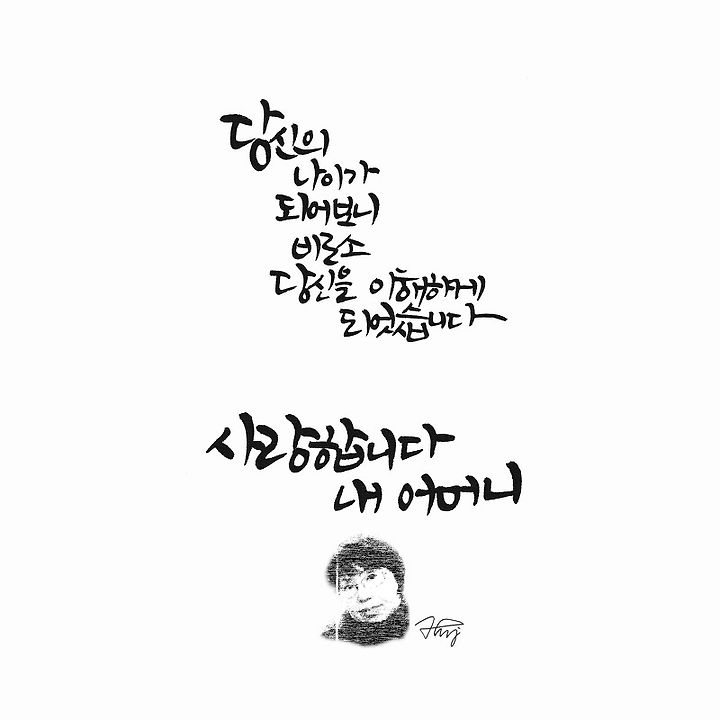 당신의
나이가
되어보니
비로소
당신을 이해하게
되었습니다
사랑합니다
내 어머니